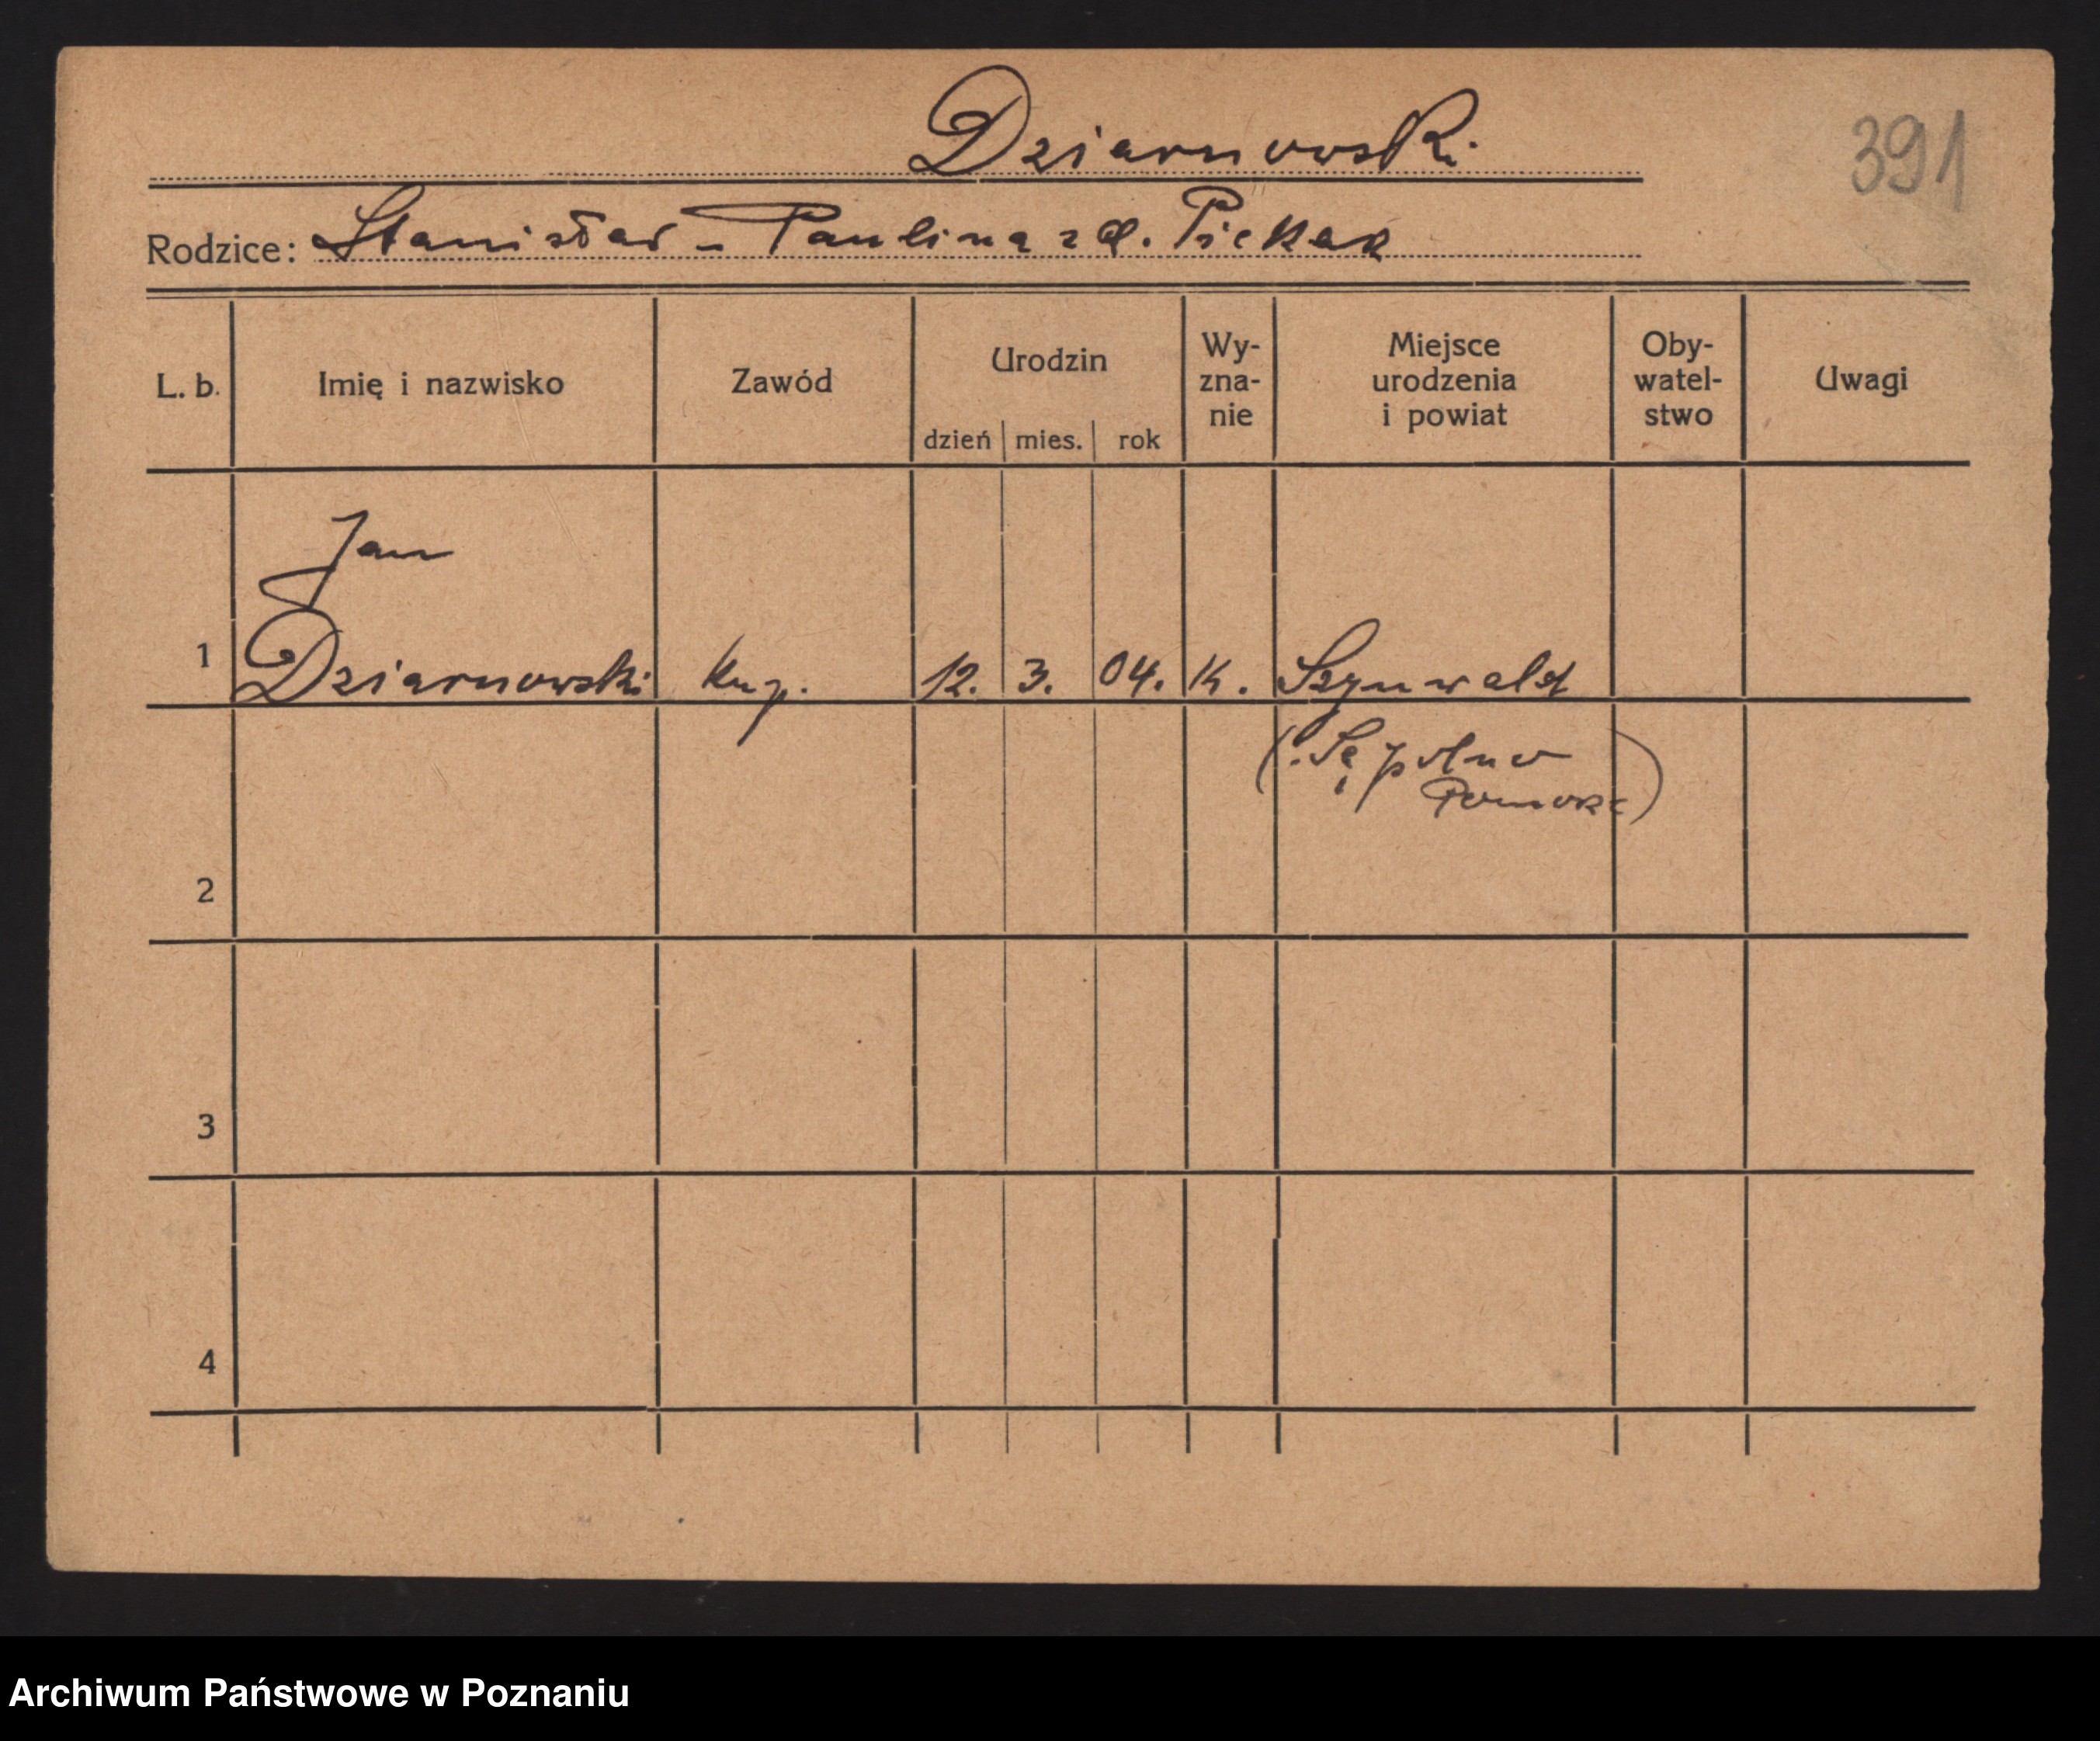 Dziarnowski
391
Rodzice: Stanisław - Paulina z d. Piekar
L. b. Imię i nazwisko Zawód Urodzin dzień mies. rok Wy-zna-nie Miejsce urodzenia i powiat Oby-watel-stwo Uwagi
Jan
1 Dziarnowski kup. 12. 3. 04. K. Szynwałd
(Sępolno
Pomorze)
2
3
4
Archiwum Państwowe w Poznaniu